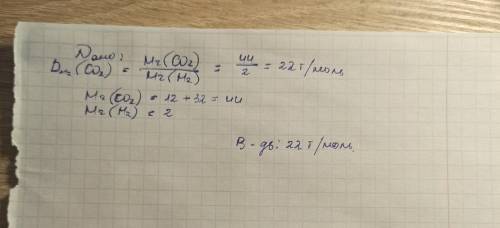 Дано:
D н₂ (CO₂) = Mr(CO₂) / Mr(H₂) = 44 / 2 = 22 г/моль
Mr(CO₂) = 12 + 32 = 44
Mr(H₂) = 2
В-дь: 22 г/моль.